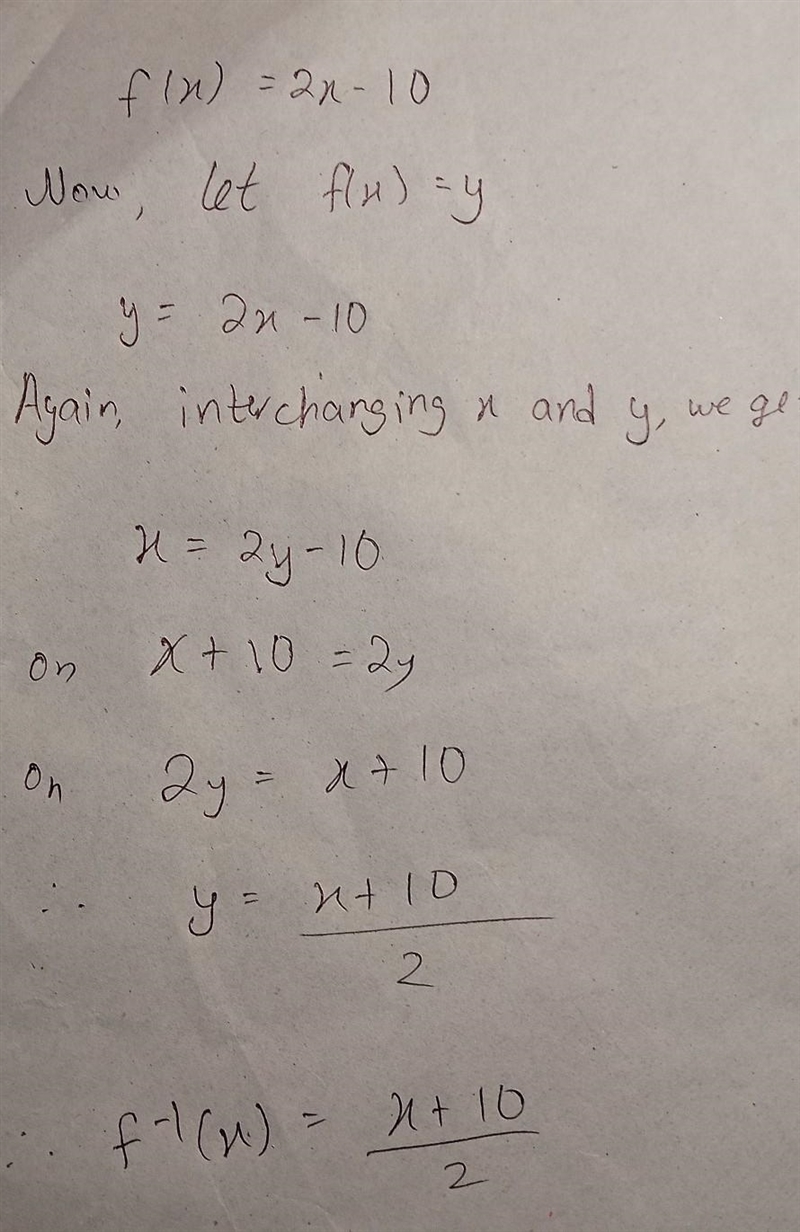 f(x) = 2x - 10
Now, let f(x) = y
y = 2x - 10
Again, interchanging x and y, we ge
x = 2y - 10
or x + 10 = 2y
or 2y = x + 10
∴ y = x + 10
2
∴ f⁻¹(x) = x + 10
2